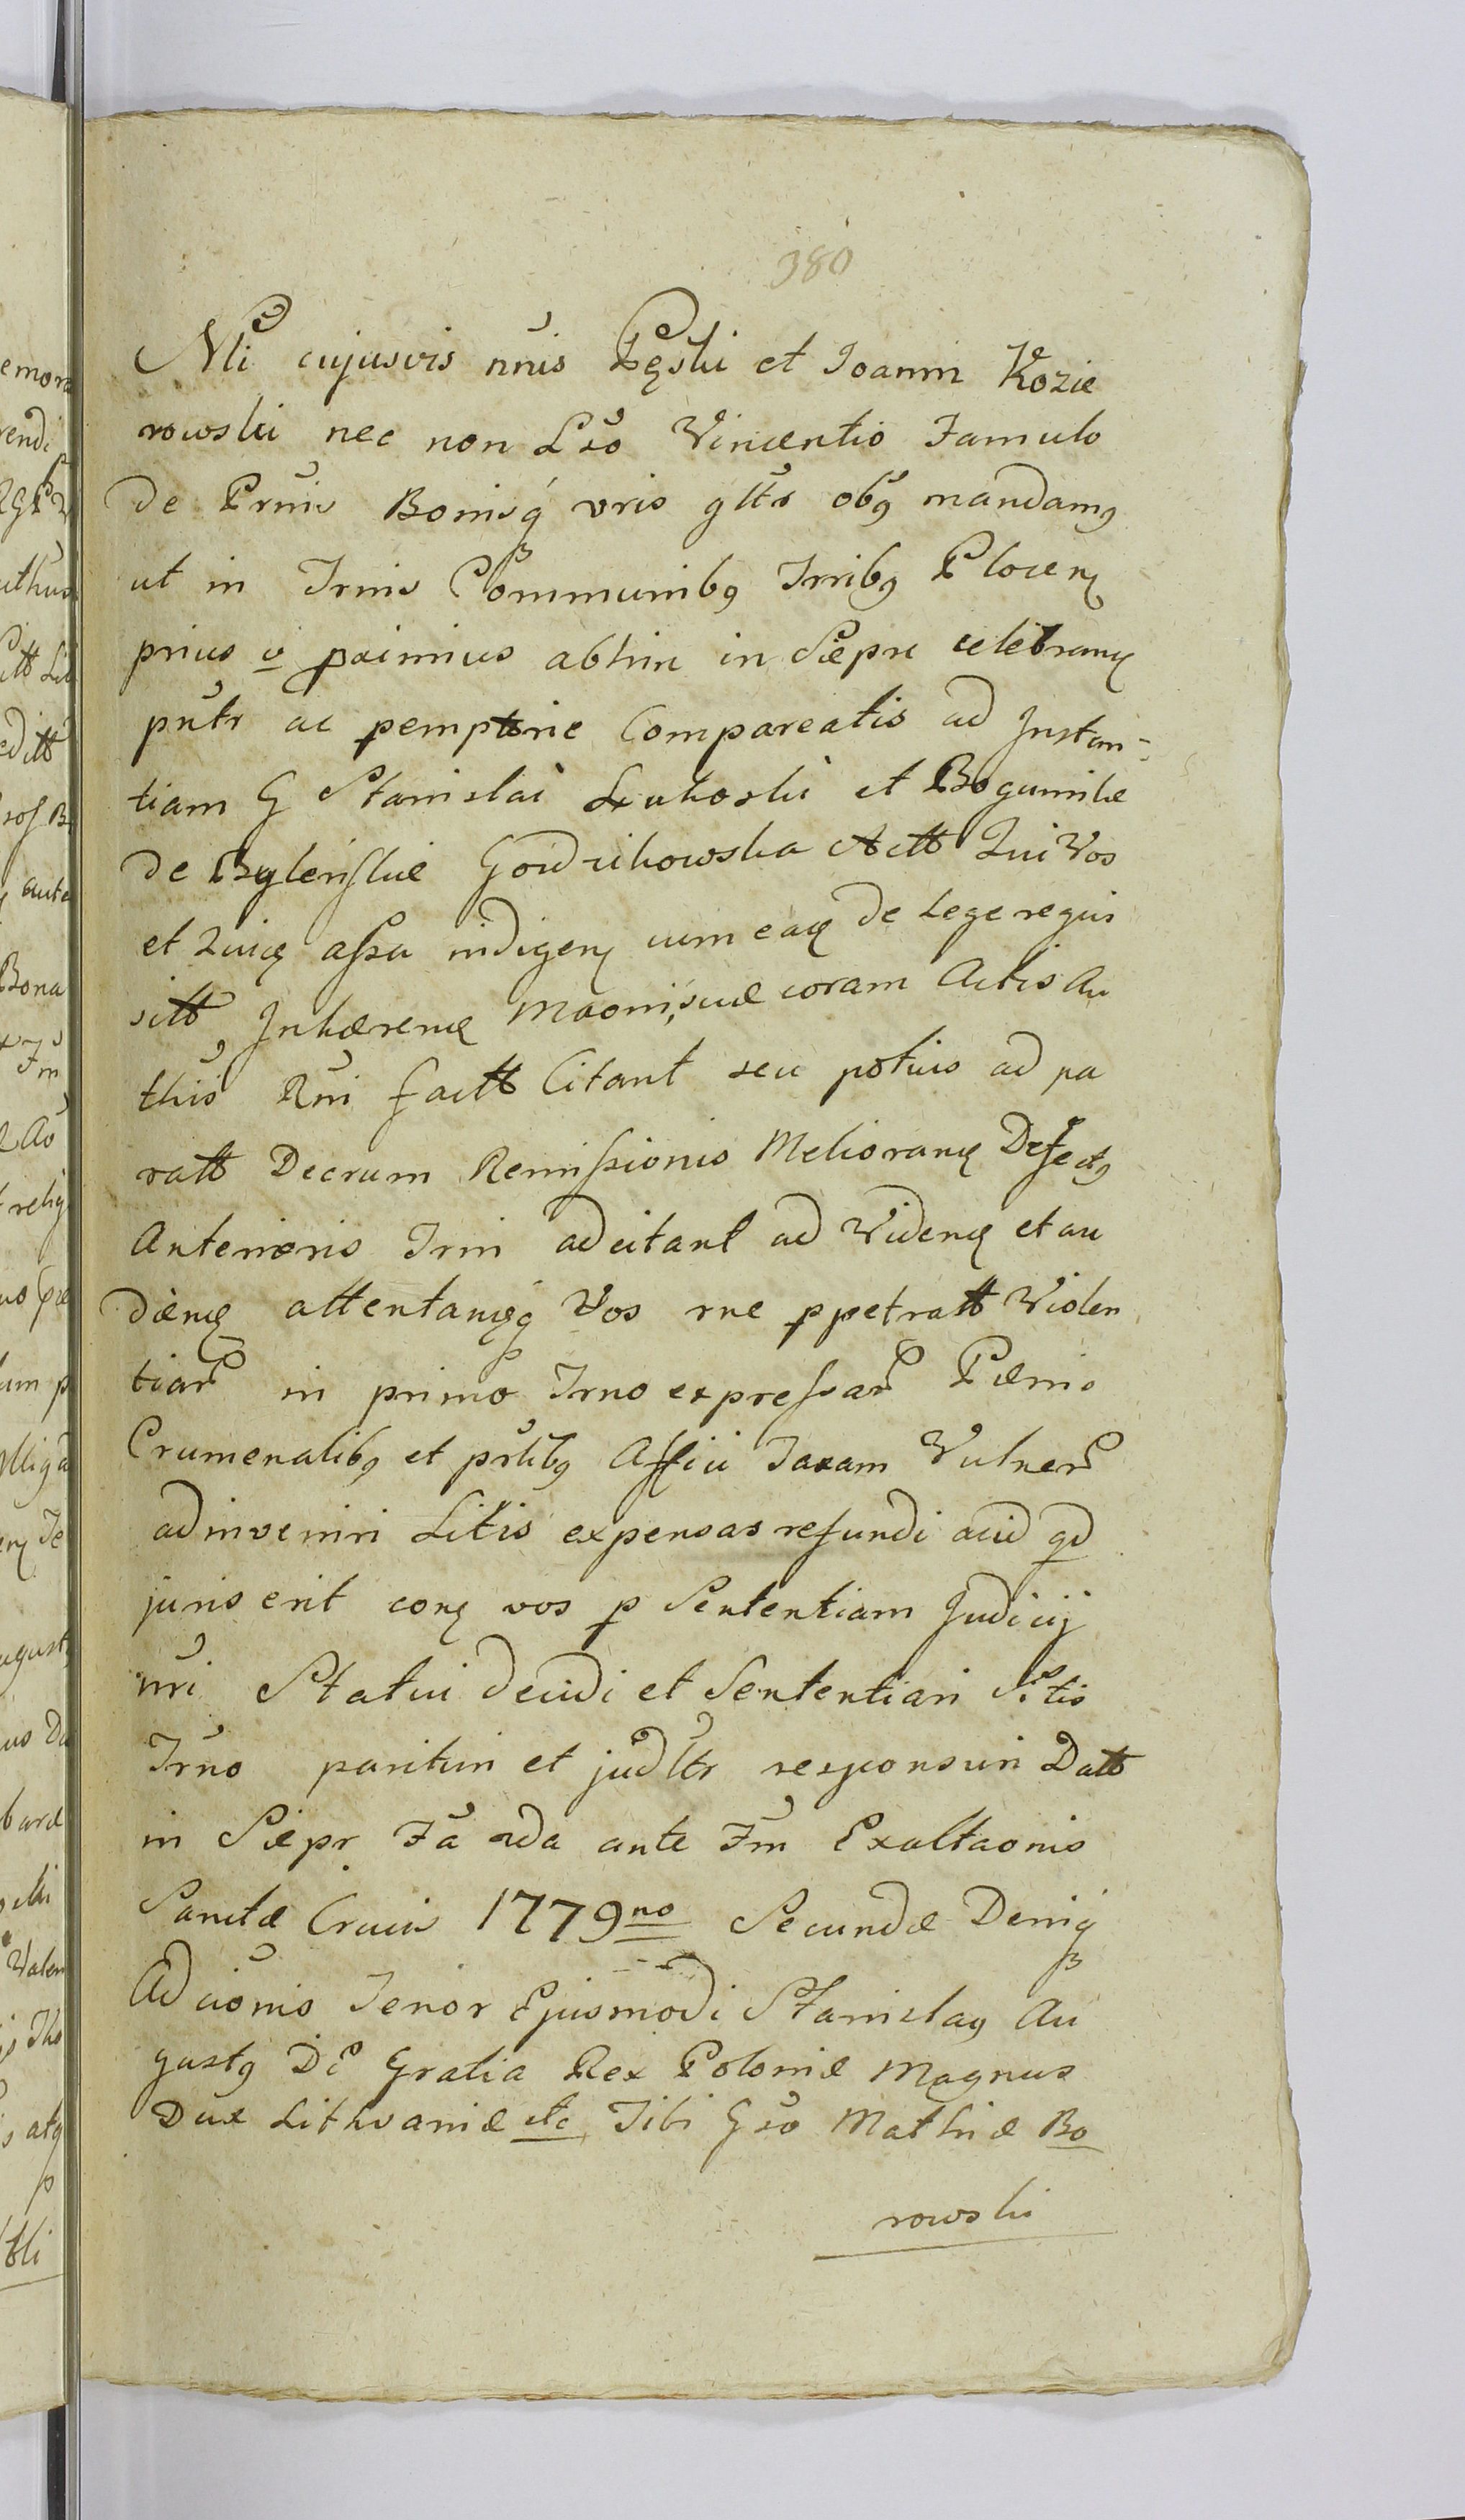 380
Nli cujusvis nnis Pęski et Joanni Kozie
rowski nec non Lbo Vincentio Famulo
de Prnis Bonisq vris gltr obg mandamg
ut in Trnis Communibg Trribg Plocen
prius v pximius abhinc in Sieprc celebran
pntr ac pemptorie Compareatis ad Instan-
tiam G Stanislai Łukoski et Bogumilæ
de Bylenskie Goıdzikowska Actt Qui Vos
et quice assa indigen cum eac de Lege regui
sitt Inhæren Maoni suæ coram Actis Au
this Rni factt Citant seu potius ad pa
ratt Decrum Remissionis Melioran Defectg
Anterioris Trni adcitant ad Viden et au
dien attentanq Vos rne ppetratt Violen
tiar in primo Trno expressar Pænis
Crumenalibg et prlibg Affici Taxam Vulner
adinveniri Litis expensas refundi acid qd
juris erit con vos p Sententiam Judicij
nri Statui decidi et Sententiari Sitis
Trno parituri et judltr responsuri Datt
in Siepr Fa 2da ante Fm Exaltaonis
Sanctæ Crucis 1779no Secundæ Deniq
Adcionis Tenor Ejusmodi Stanislag Au
gustg Di Gratia Rex Poloniæ Magnus
Dux Lithvaniæ etc Tibi Gso Mathiæ Bo
rowski